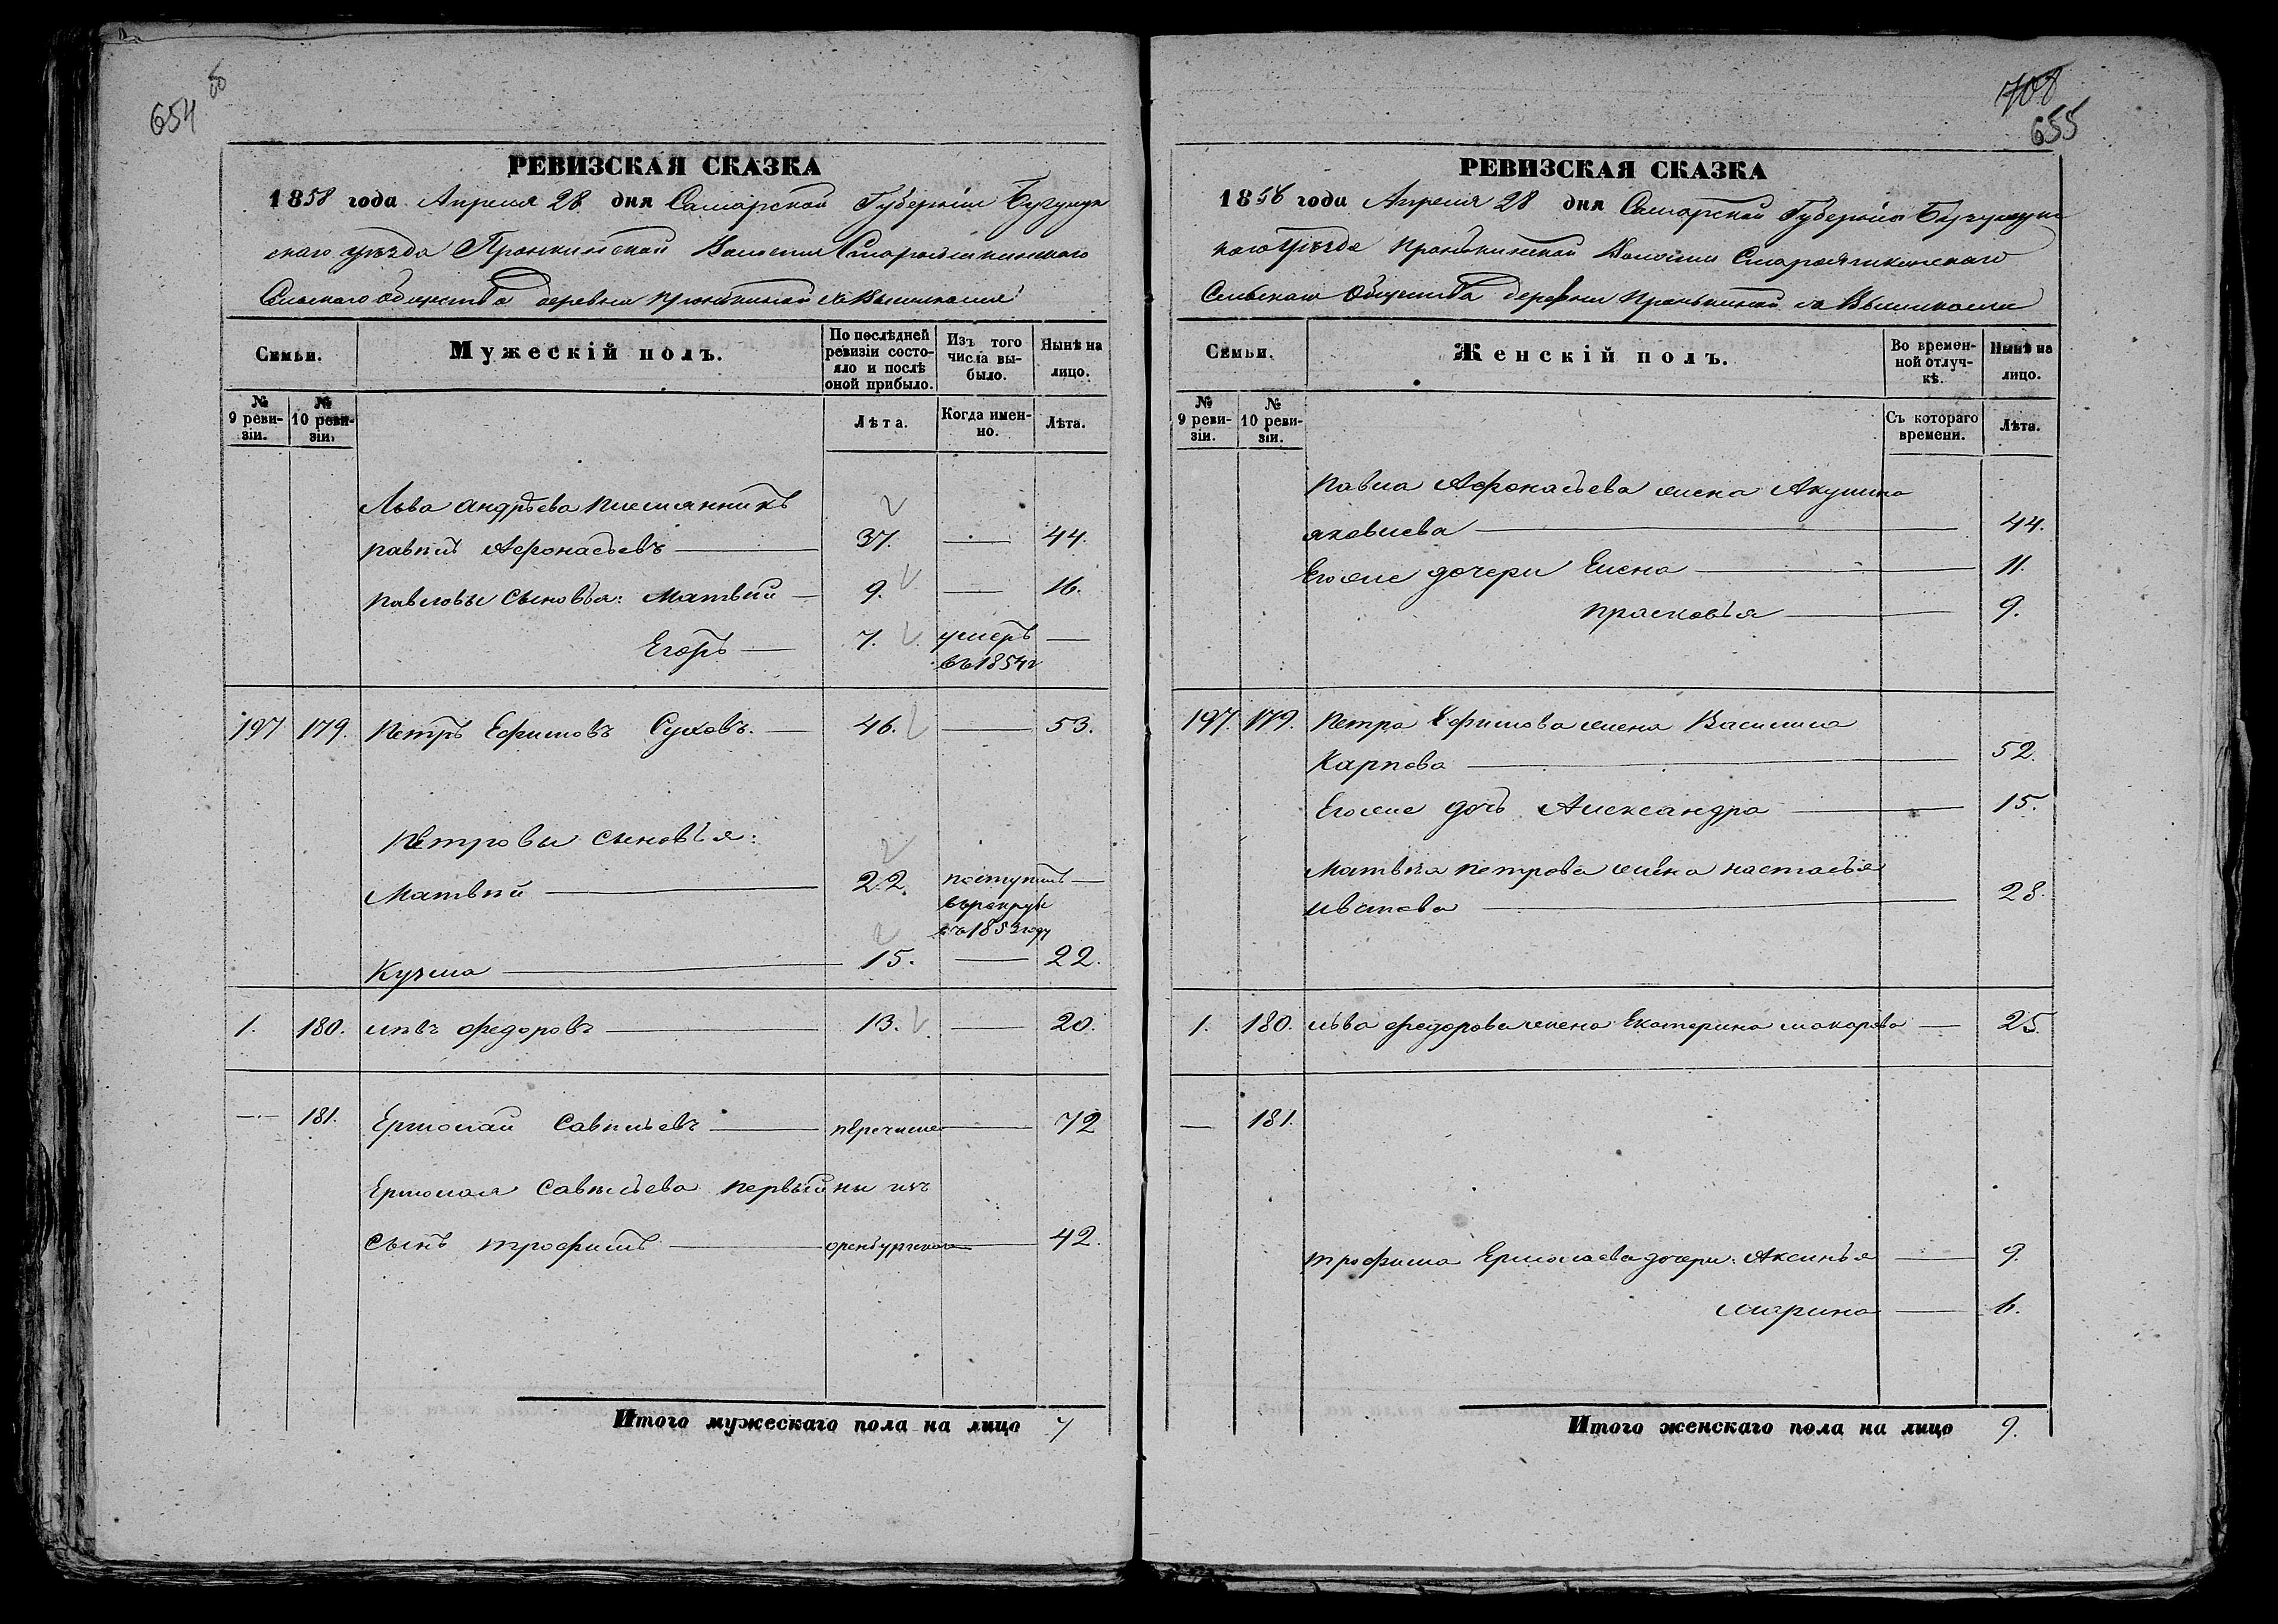 654 об
РЕВИЗСКАЯ СКАЗКА
1858 года Апреля 28 дня Самарской Губернiи Бугурус
скаго уѣзда Пронькинской Волости
Сельскаго общества деревни Пронькиной
Семьи.
Мужескiй полъ.
По послѣдней ревизiи состояло и послѣ оной прибыло.
Изъ того числа выбыло.
Нынѣ на лицо.
№ 9 ревизiи.
№ 10 ревизiи.
Лѣта.
Когда именно.
Лѣта.
Льва Андрѣева племянникъ
павилъ Афонасьевъ 37. — 44.
павловы сыновья: Матвѣй 9. — 16.
Егоръ 7. умеръ —
въ 1854 г
197 179. Петръ Ефимовъ Суховъ. 46. — 53.
Петровы сыновья:
Матвѣй 22. поступилъ —
въ рекруты
въ 1853 году
Кузма 15. — 22.
1. 180. левъ федоровъ 13. — 20.
— 181. Ермолай Савильевъ перечисле — 72
Ермолая Савильева первый ны изъ
сынъ трофимъ оренбургской — 42.
Итого мужескаго пола на лицо 7
708
655
РЕВИЗСКАЯ СКАЗКА
1858 года Апреля 28 дня Самарской Губернiи Бугурус
каго Уѣзда Пронькинской Волости
Сельскаго Общества деревни Пронькиной
Семьи.
Женскiй полъ.
Во временной отлучкѣ.
Нынѣ на лицо.
№ 9 ревизiи.
№ 10 ревизiи.
Съ котораго времени.
Лѣта.
павла Афонасьева жена Акулина
яковлева — 44.
Его же дочери Елена — 11.
прасковья — 9.
197. 179. Петра Ефимова жена Василиса
Карпова — 52.
Его же дочь Александра — 15.
Матвѣя петрова жена настасья
иванова — 28.
1. 180. льва федорова жена Екатерина макарова — 25.
— 181.
трофима Ермолаева дочери: Аксинья — 9.
— 6.
Итого женскаго пола на лицо 9.